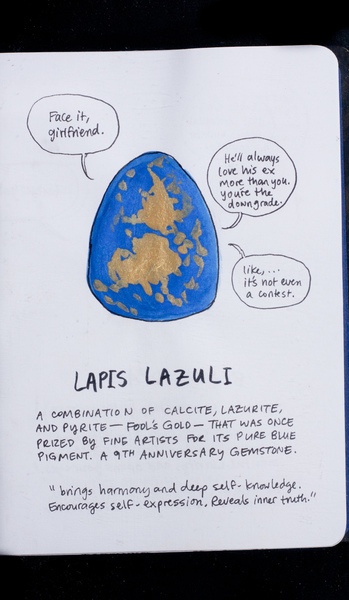 Face it,
girlfriend.
He'll always
love his ex
more than you.
you're the
downgrade.
like,...
it's not even
a contest.
LAPIS LAZULI
A COMBINATION OF CALCITE, LAZURITE,
AND PYRITE — FOOL'S GOLD — THAT WAS ONCE
PRIZED BY FINE ARTISTS FOR ITS PURE BLUE
PIGMENT. A 9TH ANNIVERSARY GEMSTONE.
"brings harmony and deep self-knowledge.
Encourages self-expression, Reveals inner truth."